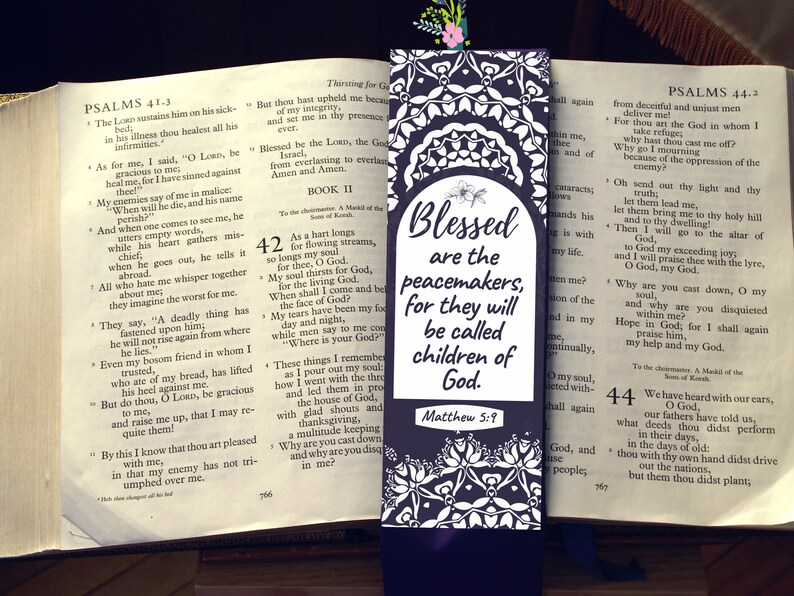 PSALMS 41.3
3 The LORD sustains him on his sick-
bed;
in his illness thou healest all his
infirmities.d
4 As for me, I said, “O LORD, be
gracious to me;
heal me, for I have sinned against
thee!”
5 My enemies say of me in malice:
“When will he die, and his name
perish?”
6 And when one comes to see me, he
utters empty words,
while his heart gathers mis-
chief;
when he goes out, he tells it
abroad.
7 All who hate me whisper together
about me;
they imagine the worst for me.
8 They say, “A deadly thing has
fastened upon him;
he will not rise again from where
he lies.”
9 Even my bosom friend in whom I
trusted,
who ate of my bread, has lifted
his heel against me.
10 But do thou, O LORD, be gracious
to me,
and raise me up, that I may re-
quite them!
11 By this I know that thou art pleased
with me,
in that my enemy has not tri-
umphed over me.
d Heb thou changest all his bed
766
Thirsting for
12 But thou hast upheld me
of my integrity,
and set me in thy presence
ever.
13 Blessed be the LORD, the
Israel,
from everlasting to
Amen and Amen.
BOOK II
To the choirmaster. A Maskil of the
Sons of Korah.
42 As a hart longs
for flowing streams,
so longs my soul
for thee, O God.
2 My soul thirsts for God,
for the living God.
When shall I come and
the face of God?
3 My tears have been my
day and night,
while men say to me
“Where is your God?”
4 These things I remember
as I pour out my soul:
how I went with the
and led them in
the house of God,
with glad shouts and
thanksgiving,
a multitude keeping
5 Why are you cast down
and why are you
in me?
Blessed
are the
peacemakers,
for they will
be called
children of
God.
Matthew 5:9
shall again
cataracts;
is with
my life.
my soul,
shall again
God, and
people;
PSALMS 44.2
from deceitful and unjust men
deliver me!
2 For thou art the God in whom I
take refuge;
why hast thou cast me off?
Why go I mourning
because of the oppression of the
enemy?
3 Oh send out thy light and thy
truth;
let them lead me,
let them bring me to thy holy hill
and to thy dwelling!
4 Then I will go to the altar of
God,
to God my exceeding joy;
and I will praise thee with the lyre,
O God, my God.
5 Why are you cast down, O my
soul,
and why are you disquieted
within me?
Hope in God; for I shall again
praise him,
my help and my God.
To the choirmaster. A Maskil of the
Sons of Korah.
44 We have heard with our ears,
O God,
our fathers have told us,
what deeds thou didst perform
in their days,
in the days of old:
2 thou with thy own hand didst drive
out the nations,
but them thou didst plant;
767